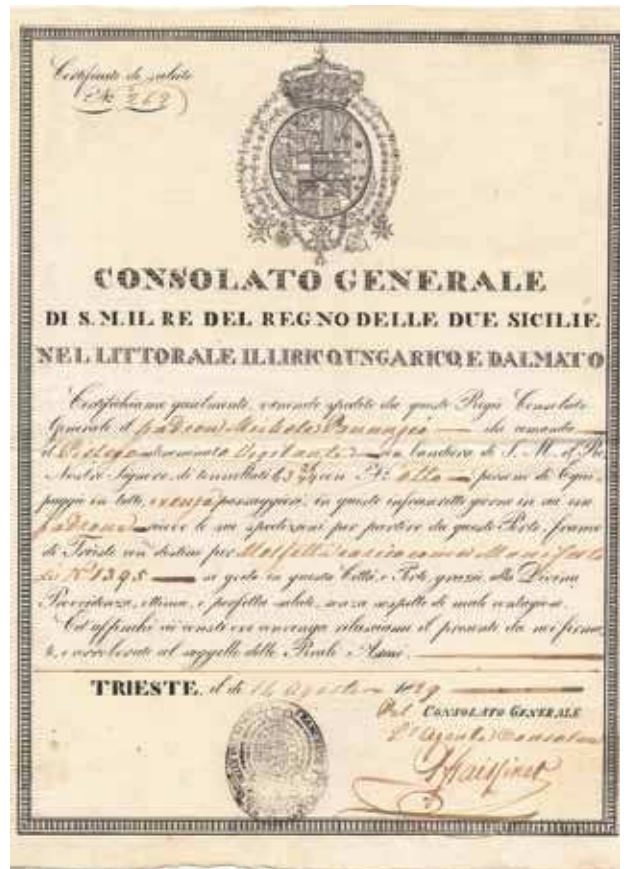 Certificato di salute
No. 269
CONSOLATO GENERALE
DI S.M. IL RE DEL REGNO DELLE DUE SICILIE
NEL LITTORALE ILLIRICO, UNGARICO, E DALMATO
Certifichiamo qualmente, venendo spedito da questo Regio Consolato
Generale il padron Michele che comanda
il denominato Vigilante con bandiera di S. M. il Re
Nostro Signore, di tonnellate 63 con No. otto persone di Equi
paggio in tutto, senza passaggieri, in questo infrascritto giorno in cui esso
padrone riceve le sue spedizioni per partire da questo Porto-franco
di Trieste con destino per Molfetta carico come a Manifesto
No 1395 si gode in questa Città, e Porto, grazie alla Divina
Provvidenza, ottima, e perfetta salute, senza sospetto di male contagioso.
Ed affinchè ci consti ove convenga rilasciamo il presente da noi firma
to, e corroborato col suggello delle Reali Armi.
TRIESTE, il dì 14 Agosto 1829
Pel CONSOLATO GENERALE
L'Agente Consolare